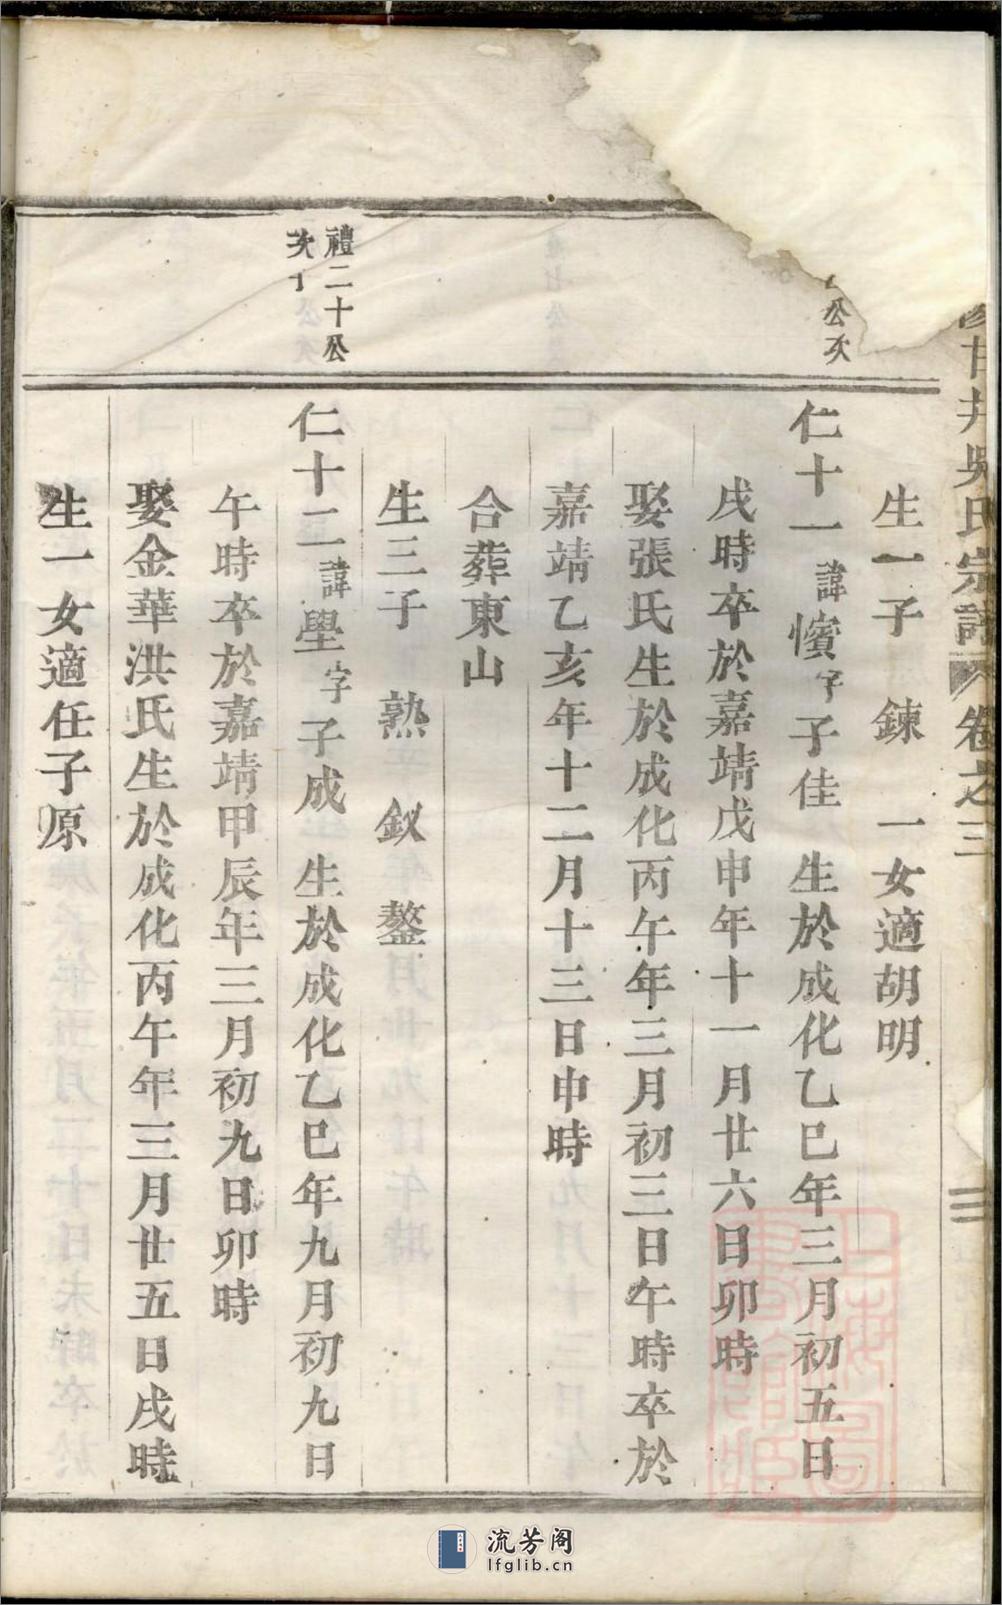 甘井吳氏宗譜 卷之三
三
公次
生一子 鍊 一女適胡明
仁十一 諱懫字子佳 生於成化乙巳年三月初五日
戌時卒於嘉靖戊申年十一月廿六日卯時
娶張氏生於成化丙午年三月初三日午時卒於
嘉靖乙亥年十二月十三日申時
合葬東山
生三子 熟 釵 鏊
禮二十公
次子
仁十二 諱壆字子成 生於成化乙巳年九月初九日
午時卒於嘉靖甲辰年三月初九日卯時
娶金華洪氏生於成化丙午年三月廿五日戌時
生一女適任子原
流芳阁
lfglib.cn